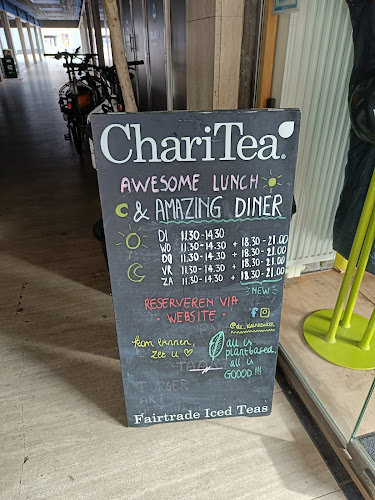 ChariTea
AWESOME LUNCH
& AMAZING DINER
DI 11.30-14.30
WO 11.30-14.30 + 18.30-21.00
DO 11.30-14.30 + 18.30-21.00
VR 11.30-14.30 + 18.30-21.00
ZA 11.30-14.30 + 18.30-21.00
NEW
RESERVEREN VIA
• WEBSITE •
Kom binnen,
zet u
all is
plantbased,
all is
GOOOD!!!
Fairtrade Iced Teas